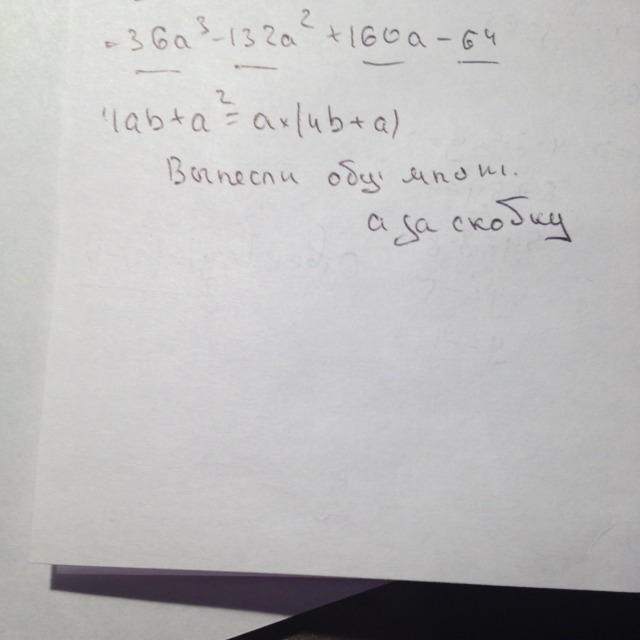 = 36a³ - 132a² + 160a - 64
4ab + a² = a × (4b + a)
Вынесли общ множ.
а за скобку